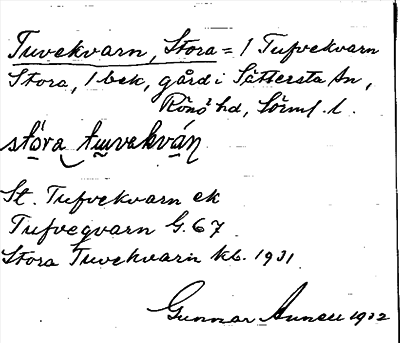 Tuvekvarn, Stora = 1 Tufvekvarn
Stora, 1 bek, gård i Sättersta sn,
Rönö hd, Sörml. l.
stóra tuvekván
St. Tufvekvarn ek
Tufveqvarn G. 67
Stora Tuvekvarn kb. 1931
Gunnar 1932